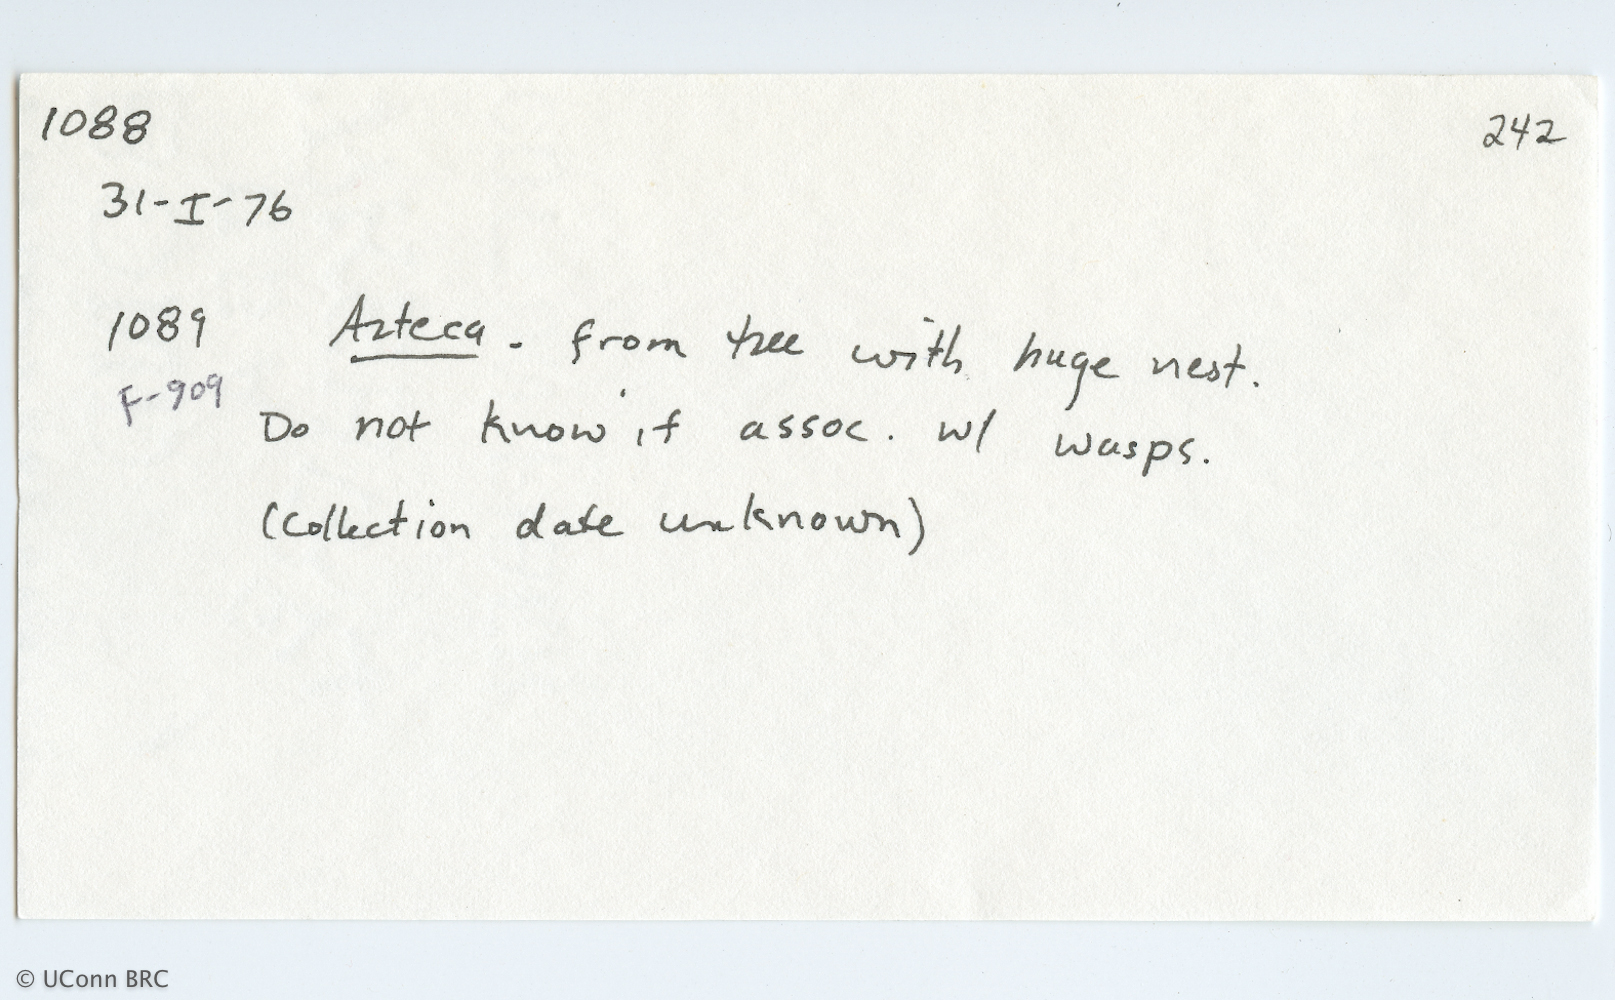 1088
242
31-I-76
1089 Azteca - from tree with huge nest.
F-909
Do not know if assoc. w/ wasps.
(collection date unknown)
© UConn BRC